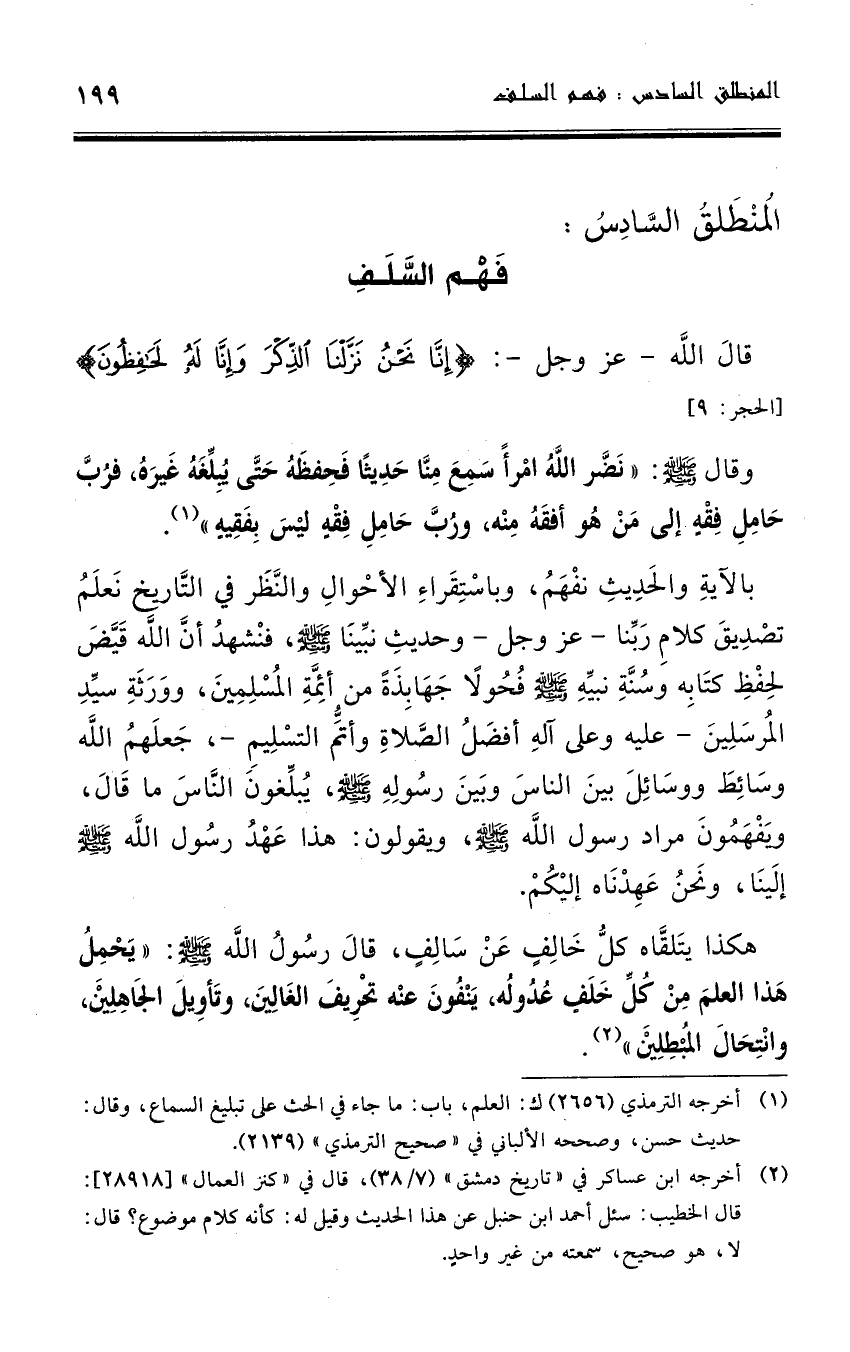 المنطلق السادس : فهم السلف ١٩٩
المُنْطَلقُ السَّادِسُ :
فَهْـمِ السَّلَـفِ
قالَ اللَّه - عز وجل -: ﴿إِنَّا نَحْنُ نَزَّلْنَا ٱلذِّكْرَ وَإِنَّا لَهُۥ لَحَٰفِظُونَ﴾
[الحجر: ٩]
وقال ﷺ: « نَضَّر اللَّهُ امْرأً سَمِعَ مِنَّا حَدِيثًا فَحِفظَهُ حَتَّى يُبلِّغَهُ غَيرَهُ، فرُبَّ
حَامِلِ فِقْهٍ إلى مَنْ هُو أفقَهُ مِنْه، ورُبَّ حَامِلِ فِقْهٍ ليْسَ بِفَقِيهٍ »(١).
بالآيةِ والحَدِيثِ نفْهَمُ، وباسْتِقَراءِ الأحْوالِ والنَّظَر في التَّاريخ نَعلَمُ
تصْدِيقَ كلامِ رَبِّنا - عز وجل - وحديثِ نبِّينَا ﷺ، فنْشهدُ أنَّ اللَّه قَيَّضَ
لحِفْظِ كتَابِه وسُنَّةِ نبيِّهِ ﷺ فُحُولًا جَهَابِذَةً من أئِمَّةِ المُسْلِمِينَ، ووَرَثَةِ سيِّدِ
المُرسَلِينَ - عليه وعلى آلهِ أفضَلُ الصَّلاةِ وأتمُّ التسْلِيمِ -، جَعلَهمُ اللَّه
وسَائِطَ ووسَائِلَ بينَ الناسَ وبَينَ رسُولِهِ ﷺ، يُبلِّغونَ النَّاسَ ما قَالَ،
ويَفْهَمُونَ مراد رسول اللَّه ﷺ، ويقولون: هذا عَهْدُ رسُول اللَّه ﷺ
إلَينَا، ونَحنُ عَهِدْنَاه إليْكُمْ.
هكذا يتَلقَّاه كلُّ خَالِفٍ عَنْ سَالِفٍ، قالَ رسولُ اللَّه ﷺ: « يَحْمِلُ
هَذا العلمَ مِنْ كُلِّ خَلَفٍ عُدُولُه، يَنْفُونَ عنْه تحْرِيفَ الغَالِينَ، وتَأوِيلَ الجَاهِلِينَ،
وانْتِحَالَ المُبْطِلِينَ »(٢).
(١) أخرجه الترمذي (٢٦٥٦) ك: العلم، باب: ما جاء في الحث على تبليغ السماع، وقال:
حديث حسن، وصححه الألباني في « صحيح الترمذي » (٢١٣٩).
(٢) أخرجه ابن عساكر في « تاريخ دمشق » (٣٨/٧)، قال في « كنز العمال » [٢٨٩١٨]:
قال الخطيب: سئل أحمد ابن حنبل عن هذا الحديث وقيل له: كأنه كلام موضوع؟ قال:
لا، هو صحيح، سمعته من غير واحدٍ.